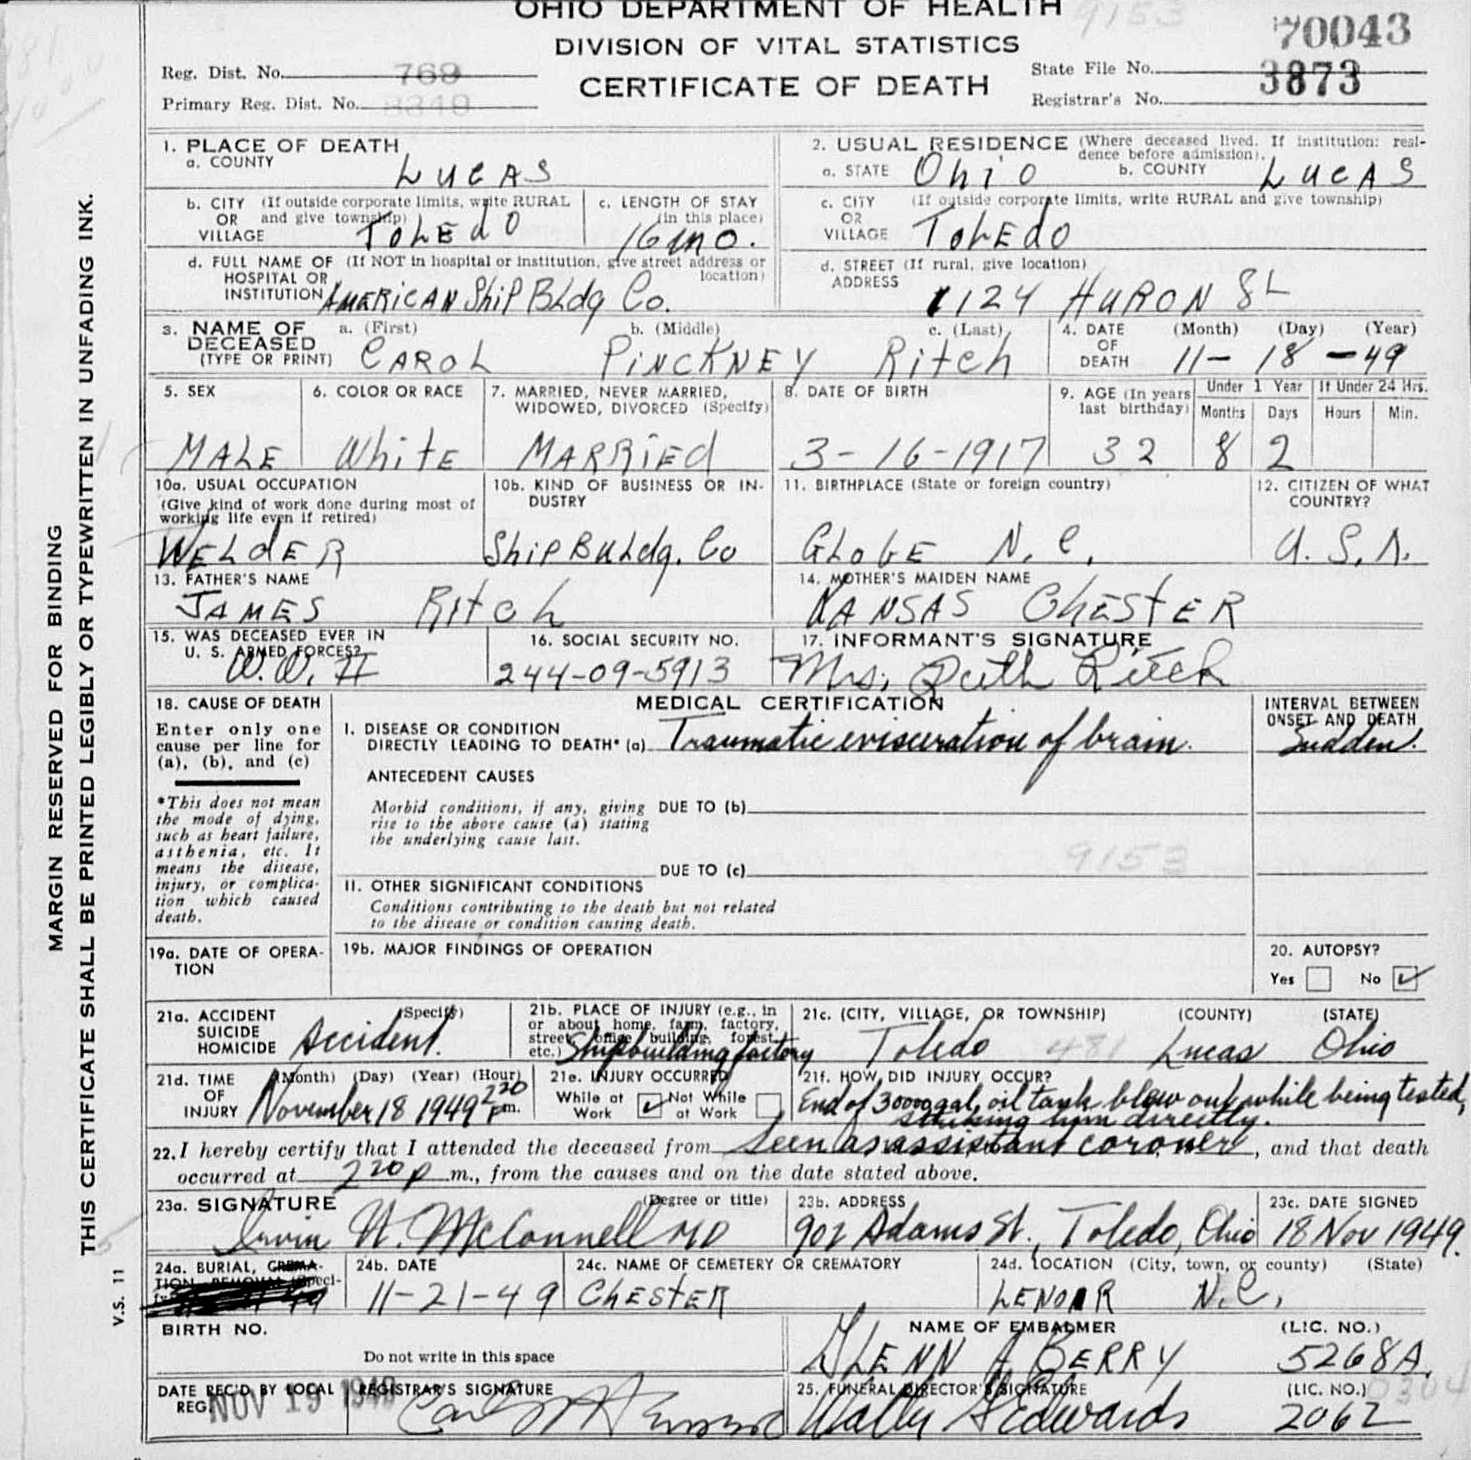 OHIO DEPARTMENT OF HEALTH
DIVISION OF VITAL STATISTICS
CERTIFICATE OF DEATH
9153
70043
Reg. Dist. No. 769
State File No.
3873
Primary Reg. Dist. No.
Registrar's No.
1. PLACE OF DEATH
a. COUNTY LUCAS
2. USUAL RESIDENCE (Where deceased lived. If institution: residence before admission).
a. STATE Ohio b. COUNTY LUCAS
b. CITY OR VILLAGE (If outside corporate limits, write RURAL and give township) TOLEDO
c. LENGTH OF STAY (in this place) 16 mo.
c. CITY OR VILLAGE (If outside corporate limits, write RURAL and give township) TOLEDO
d. FULL NAME OF HOSPITAL OR INSTITUTION (If NOT in hospital or institution, give street address or location) AMERICAN Ship BLdg Co.
d. STREET ADDRESS (If rural, give location) 1124 HURON St
3. NAME OF DECEASED (TYPE OR PRINT) a. (First) b. (Middle) c. (Last)
CAROL PINCKNEY Ritch
4. DATE OF DEATH (Month) (Day) (Year)
11- 18 -49
5. SEX MALE
6. COLOR OR RACE White
7. MARRIED, NEVER MARRIED, WIDOWED, DIVORCED (Specify) MARRiEd
8. DATE OF BIRTH 3- 16-1917
9. AGE (In years last birthday) 32
Under 1 Year Months 8 Days 2
If Under 24 Hrs. Hours Min.
10a. USUAL OCCUPATION (Give kind of work done during most of working life even if retired) WELdER
10b. KIND OF BUSINESS OR INDUSTRY Ship BuLdg. Co
11. BIRTHPLACE (State or foreign country) GLOBE N. C.
12. CITIZEN OF WHAT COUNTRY? U. S. A.
13. FATHER'S NAME JAMES Ritch
14. MOTHER'S MAIDEN NAME KANSAS CHESTER
15. WAS DECEASED EVER IN U. S. ARMED FORCES? W. W. II
16. SOCIAL SECURITY NO. 244-09-5913
17. INFORMANT'S SIGNATURE Mrs. Ruth Ritch
18. CAUSE OF DEATH
Enter only one cause per line for (a), (b), and (c)
*This does not mean the mode of dying, such as heart failure, asthenia, etc. It means the disease, injury, or complication which caused death.
MEDICAL CERTIFICATION
INTERVAL BETWEEN ONSET AND DEATH
I. DISEASE OR CONDITION DIRECTLY LEADING TO DEATH* (a) Traumatic evisceration of brain. Sudden.
ANTECEDENT CAUSES
Morbid conditions, if any, giving rise to the above cause (a) stating the underlying cause last.
DUE TO (b)
9153
DUE TO (c)
II. OTHER SIGNIFICANT CONDITIONS
Conditions contributing to the death but not related to the disease or condition causing death.
19a. DATE OF OPERATION
19b. MAJOR FINDINGS OF OPERATION
20. AUTOPSY?
Yes No
21a. ACCIDENT SUICIDE HOMICIDE (Specify) Accident.
21b. PLACE OF INJURY (e.g., in or about home, farm, factory, street, office building, forest, etc.) Shipbuilding factory
21c. (CITY, VILLAGE, OR TOWNSHIP) (COUNTY) (STATE)
Toledo 481 Lucas Ohio
21d. TIME OF INJURY (Month) (Day) (Year) (Hour) November 18 1949 2 20 p m.
21e. INJURY OCCURRED
While at Work Not While at Work
21f. HOW DID INJURY OCCUR?
End of 30000 gal. oil tank blew out while being tested, striking him directly.
22. I hereby certify that I attended the deceased from Seen as assistant coroner, and that death
occurred at 2 20 p m., from the causes and on the date stated above.
23a. SIGNATURE (Degree or title) Irvin W. McConnell MD
23b. ADDRESS 902 Adams St., Toledo, Ohio
23c. DATE SIGNED 18 Nov 1949.
24a. BURIAL, CREMATION, REMOVAL (Specify)
24b. DATE 11-21-49
24c. NAME OF CEMETERY OR CREMATORY CHESTER
24d. LOCATION (City, town, or county) (State) LENOIR N.C.
BIRTH NO.
Do not write in this space
NAME OF EMBALMER (LIC. NO.)
GLENN A BERRY 5268A
DATE REC'D BY LOCAL REG. NOV 19 1949
REGISTRAR'S SIGNATURE
25. FUNERAL DIRECTOR'S SIGNATURE (LIC. NO.)
Edwards 2062
MARGIN RESERVED FOR BINDING
THIS CERTIFICATE SHALL BE PRINTED LEGIBLY OR TYPEWRITTEN IN UNFADING INK.
V.S. 11